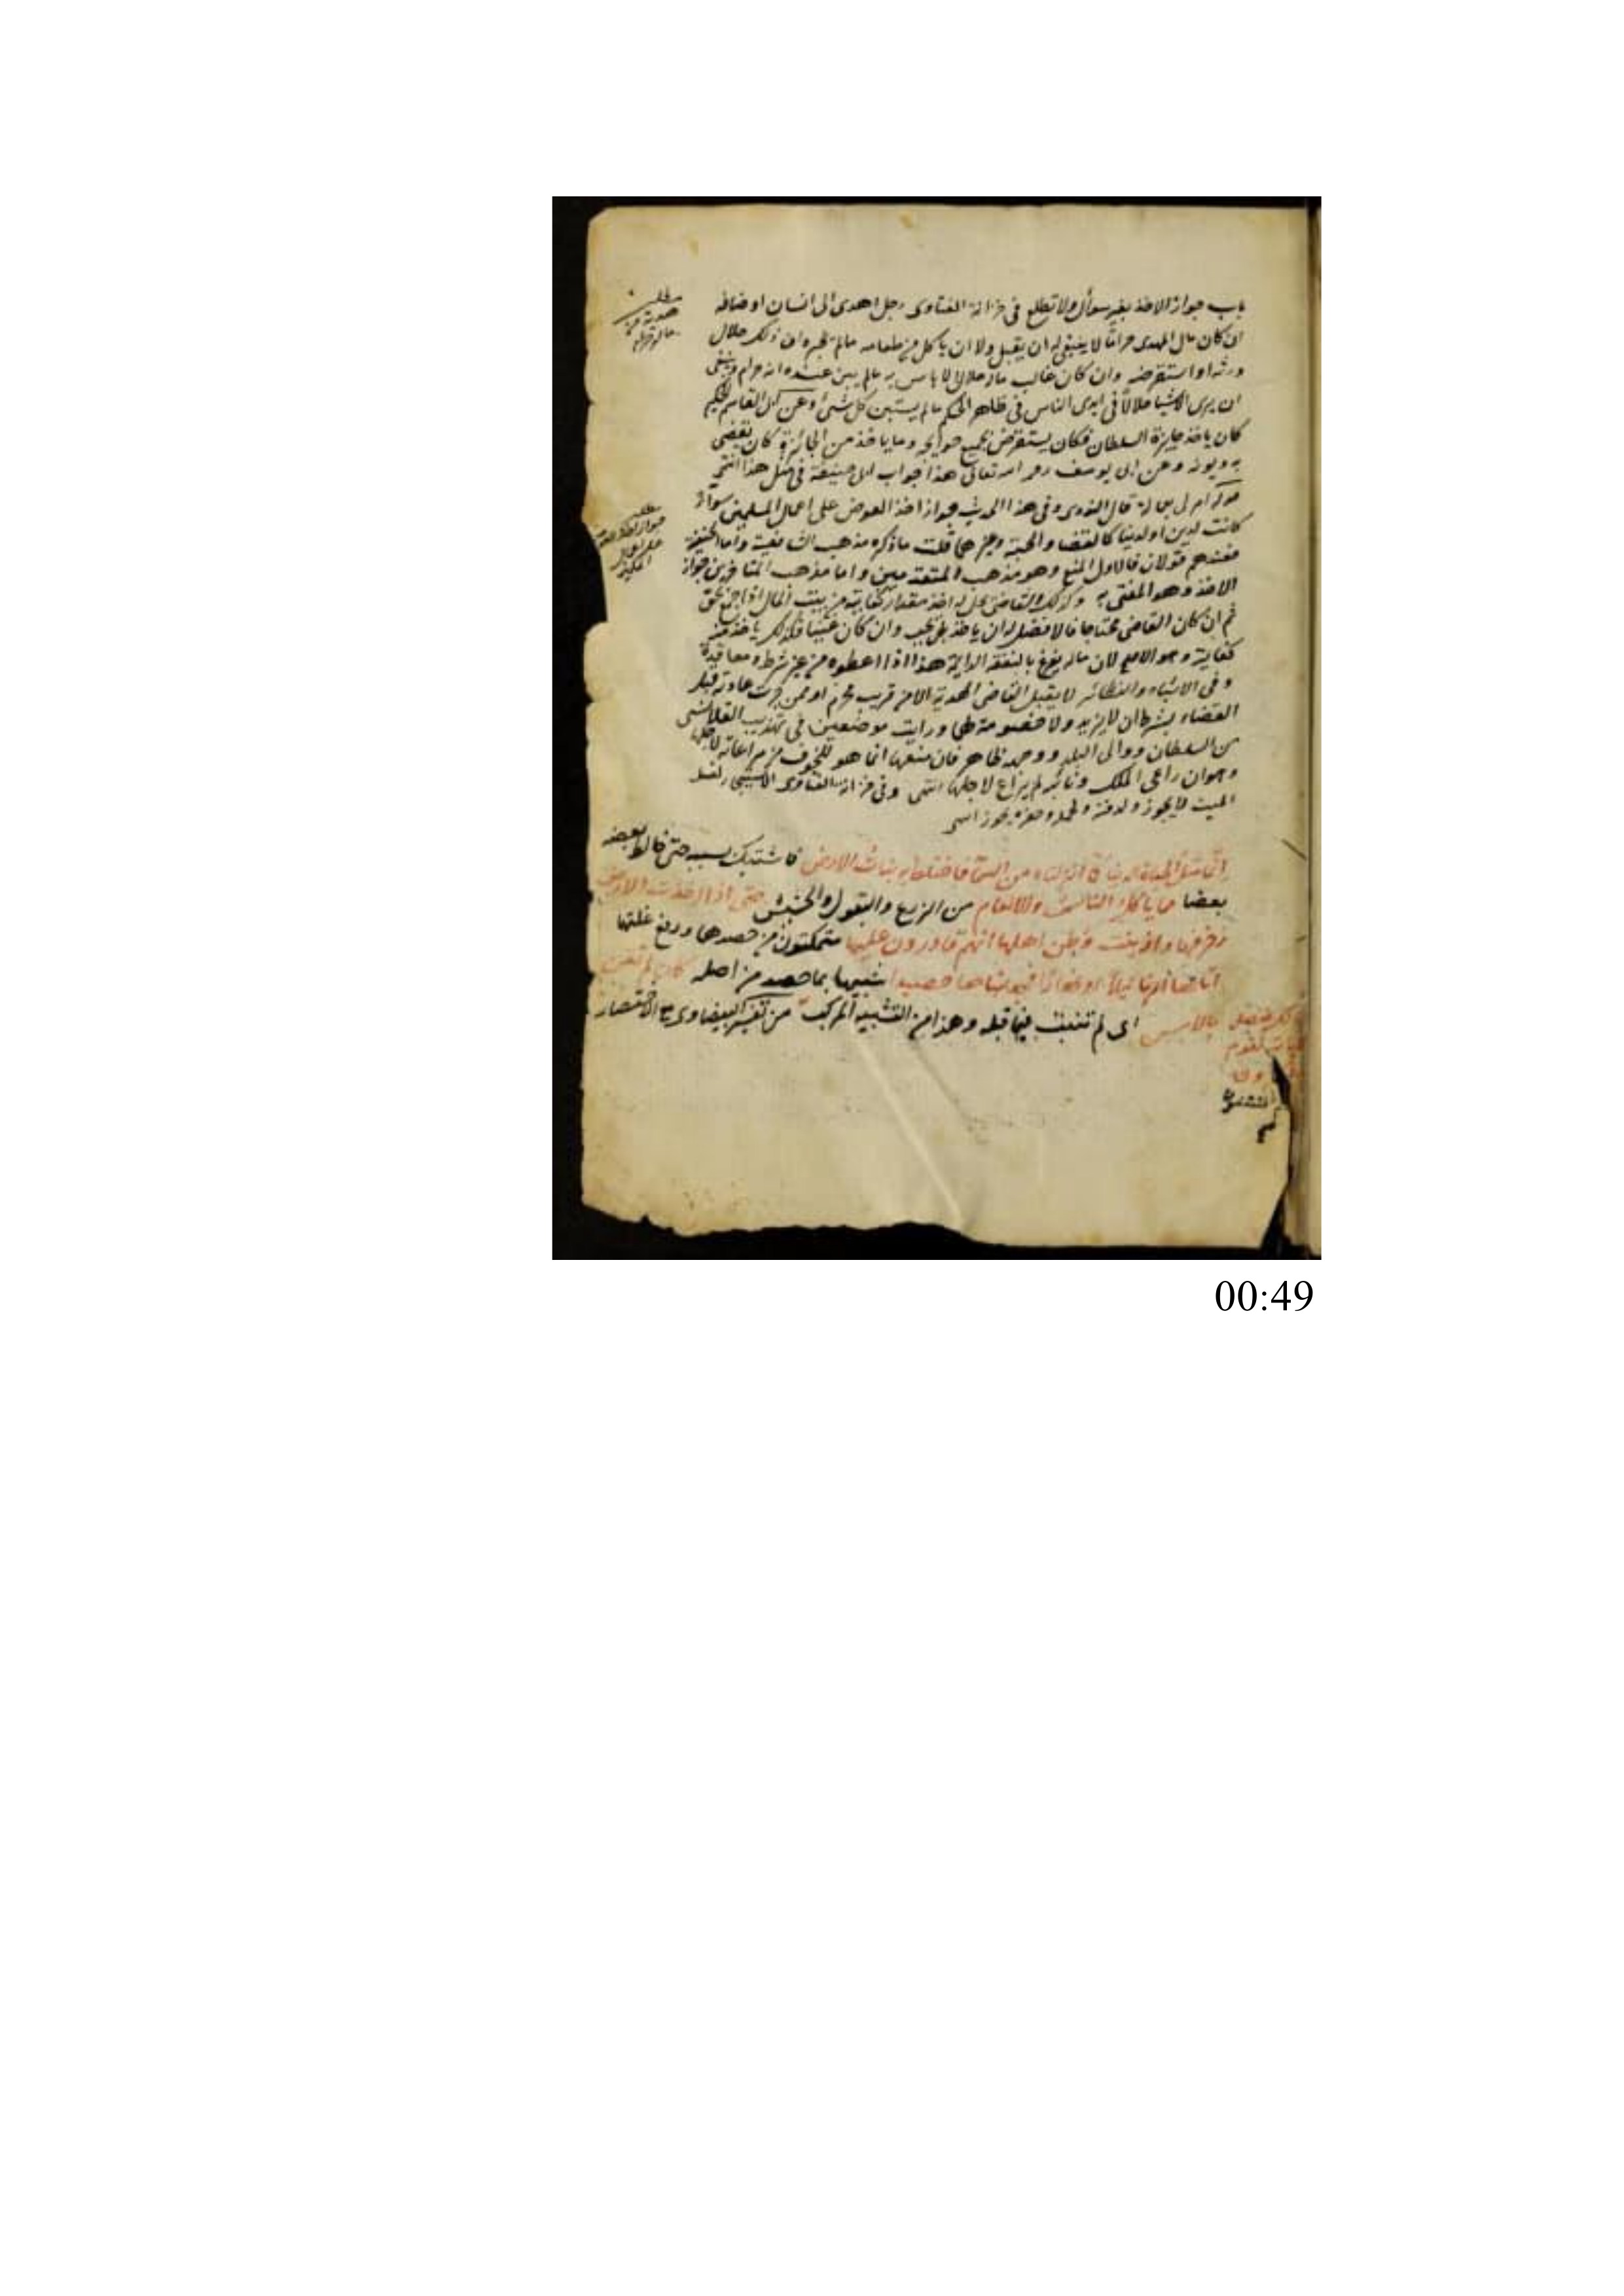 باب جواز الاخذ بغير سوأل ولا تطلع فى خزانة الفتاوى رجل اهدى الى انسان او ضافه
ان كان مال المهدى حرامًا لا ينبغى له ان يقبل ولا ان ياكل من طعامه مالم يخبره ان ذلك حلال
ورثه او استقرضه وان كان غالب ماله حلالا لا باس به مالم يبين عنده انه حرام وينبغى
ان يرى الاشيا حلالًا فى ايدى الناس فى ظاهر الحكم مالم يستبين كل شئ وعن ابى القاسم الحكيم
كان ياخذ جايزة السلطان فكان يستقرض لجميع حوايجه وما ياخذ من الجائزة كان يقضى
به ديونه وعن ابى يوسف رحمه الله تعالى هذا جواب ابى حنيفة فى مثل هذا انتهى
قال النووى وفى هذا الحديث جواز اخذ العوض على اعمال المسلمين سوآء
كانت لدين او لدنيا كالقضا والحسبة وغيرهما قلت ماذكره مذهب الشافعية واما الحنفية
فعندهم قولان فالاول المنع وهو مذهب المتقدمين واما مذهب المتاخرين جواز
الاخذ وهو المفتى به وكذلك القاضى يحل له اخذ مقدار كفايته من بيت المال اذا جمع بحق
ثم ان كان القاضى محتاجا فالافضل له ان ياخذ بل يجب وان كان غنيا فكذلك ياخذ منه
كفايته وهو الاصح لان ماله يفرغ بالنفقة الدايمة هذا اذا اعطوه من غير شرط ومعاقدة
وفى الاشباه والنظائر لا يقبل القاضى الهدية الا من قريب محرم او ممن جرت عادته قبل
القضاء بشرط ان لا يزيد ولا خصومة لهما ورايت موضعين فى تهذيب القلانسى
من السلطان ووالى البلد ووجهه ظاهر فان منعها انما هو للخوف من مراعاته لاجلها
وهو ان راعى الملك ونائبه لم يراع لاجلها انتهى وفى خزانة الفتاوى الاستيجار لغسل
الميت لا يجوز ولدفنه وحمله وحفره يجوز انتهى
انما مثل الحيوة الدنيا كماء انزلناه من السماء فاختلط به نبات الارض فاشتبك بسببه حتى خالط بعضه
بعضا مما ياكل الناس والانعام من الزرع والبقول والحشيش حتى اذا اخذت الارض
زخرفها وازينت وظن اهلها انهم قادرون عليها متمكنون من حصدها ورفع غلتها
اتاها امرنا ليلًا او نهارًا فجعلناها حصيدا شبيها بما حصد من اصله كان لم تغن
بالامس اى لم تنبت فيما قبله وهذا من التشبيه المركب من تفسير البيضاوى مع الاختصار
كذلك نفصل
الايات لقوم
00:49